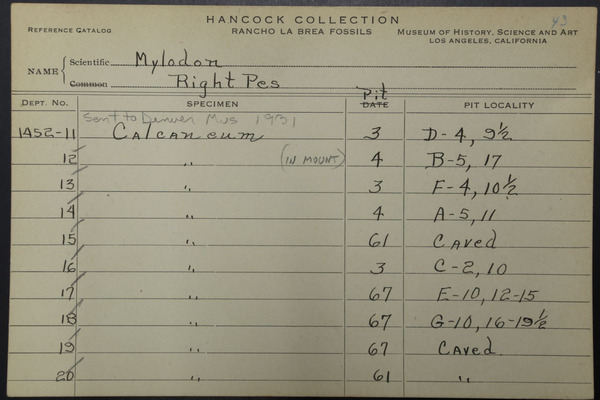 HANCOCK COLLECTION 43
REFERENCE CATALOG RANCHO LA BREA FOSSILS MUSEUM OF HISTORY, SCIENCE AND ART
LOS ANGELES, CALIFORNIA
NAME Scientific Mylodon
Common Right Pes
Pit
DEPT. NO. SPECIMEN DATE PIT LOCALITY
Sent to Denver Mus 1931
1452-11 Calcaneum 3 D-4, 9½
12 " (IN MOUNT) 4 B-5, 17
13 " 3 F-4, 10½
14 " 4 A-5, 11
15 " 61 Caved
16 " 3 C-2, 10
17 " 67 E-10, 12-15
18 " 67 G-10, 16-19½
19 " 67 Caved
20 " 61 "